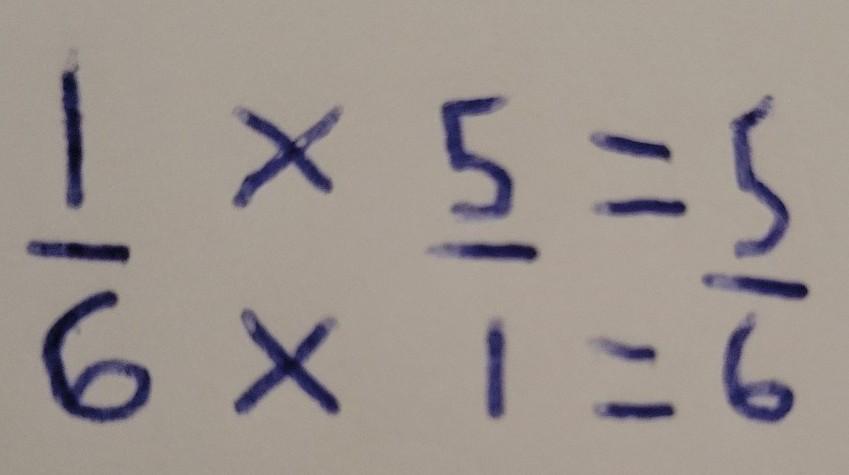 1 × 5 = 5
6 × 1 = 6